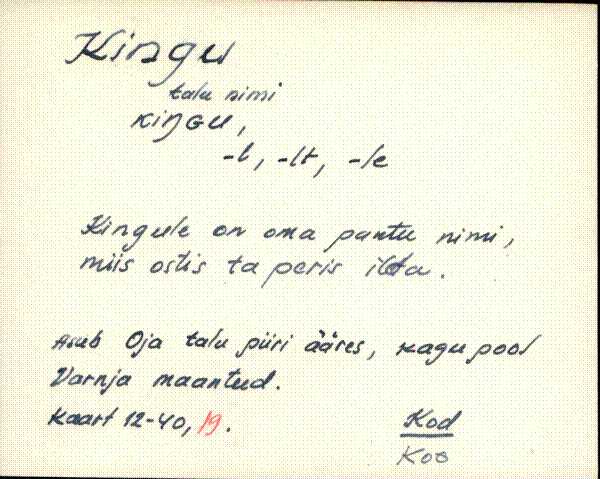 Kingu
talu nimi
kiŋɢu,
-l, -lt, -le
Kingule on oma pantu nimi,
miis ostis ta peris
Asub Oja talu piiri ääres, kagu pool
Varnja maantud.
Kaart 12-40, 19.
Kod
Koo